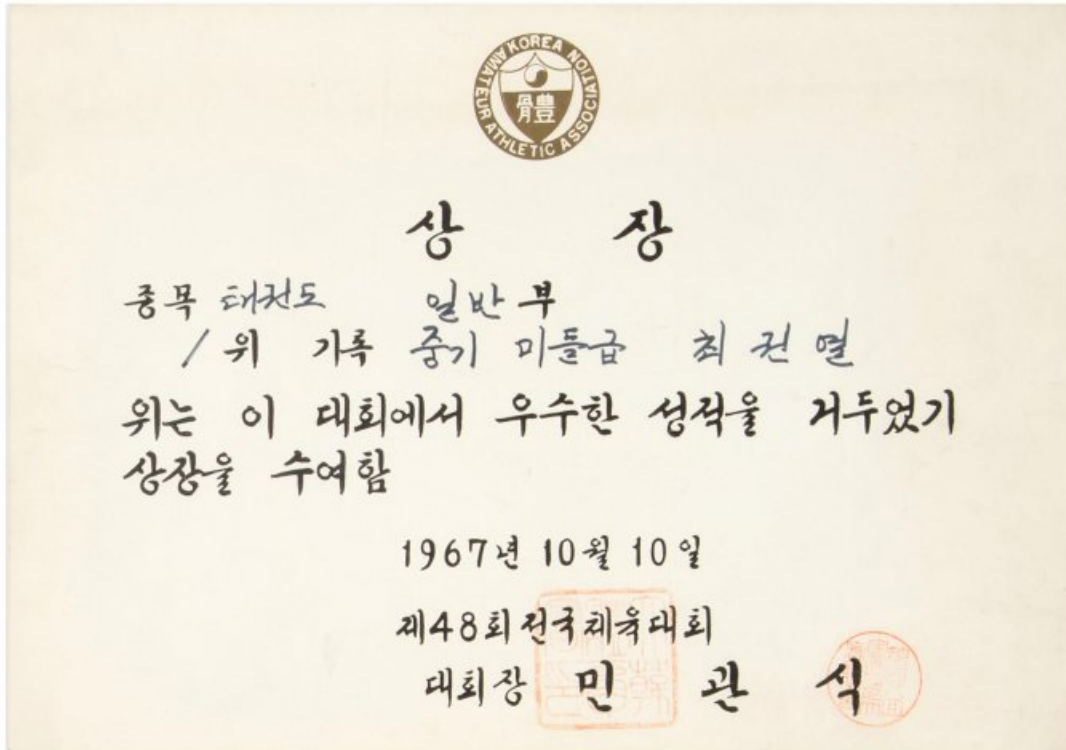 KOREA AMATEUR ATHLETIC ASSOCIATION
體
상 장
종목 태권도 일반부
1위 기록 중기 미들급 최권열
위는 이 대회에서 우수한 성적을 거두었기
상장을 수여함
1967년 10월 10일
제48회 전국체육대회
대회장 민 관 식